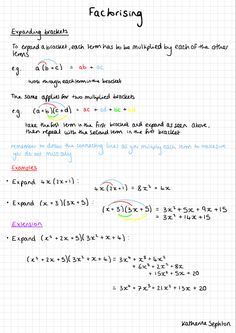 Factorising
Expanding brackets
To expand a bracket, each term has to be multiplied by each of the other
terms
e.g. a(b+c) = ab + ac
work through each term in the bracket
The same applies for two multiplied brackets
e.g. (a+b)(c+d) = ac + ad + bc + bd
take the first term in the first bracket and expand as seen above,
then repeat with the second term in the first bracket
remember to draw the connecting lines as you multiply each term to make sure
you do not miss any
Examples
• Expand 4x(2x+1): 4x(2x+1) = 8x² + 4x
• Expand (x+3)(3x+5): (x+3)(3x+5) = 3x² + 5x + 9x + 15
= 3x² + 14x + 15
Extension
• Expand (x² + 2x + 5)(3x² + x + 4):
(x² + 2x + 5)(3x² + x + 4) =
Katherine Sephton